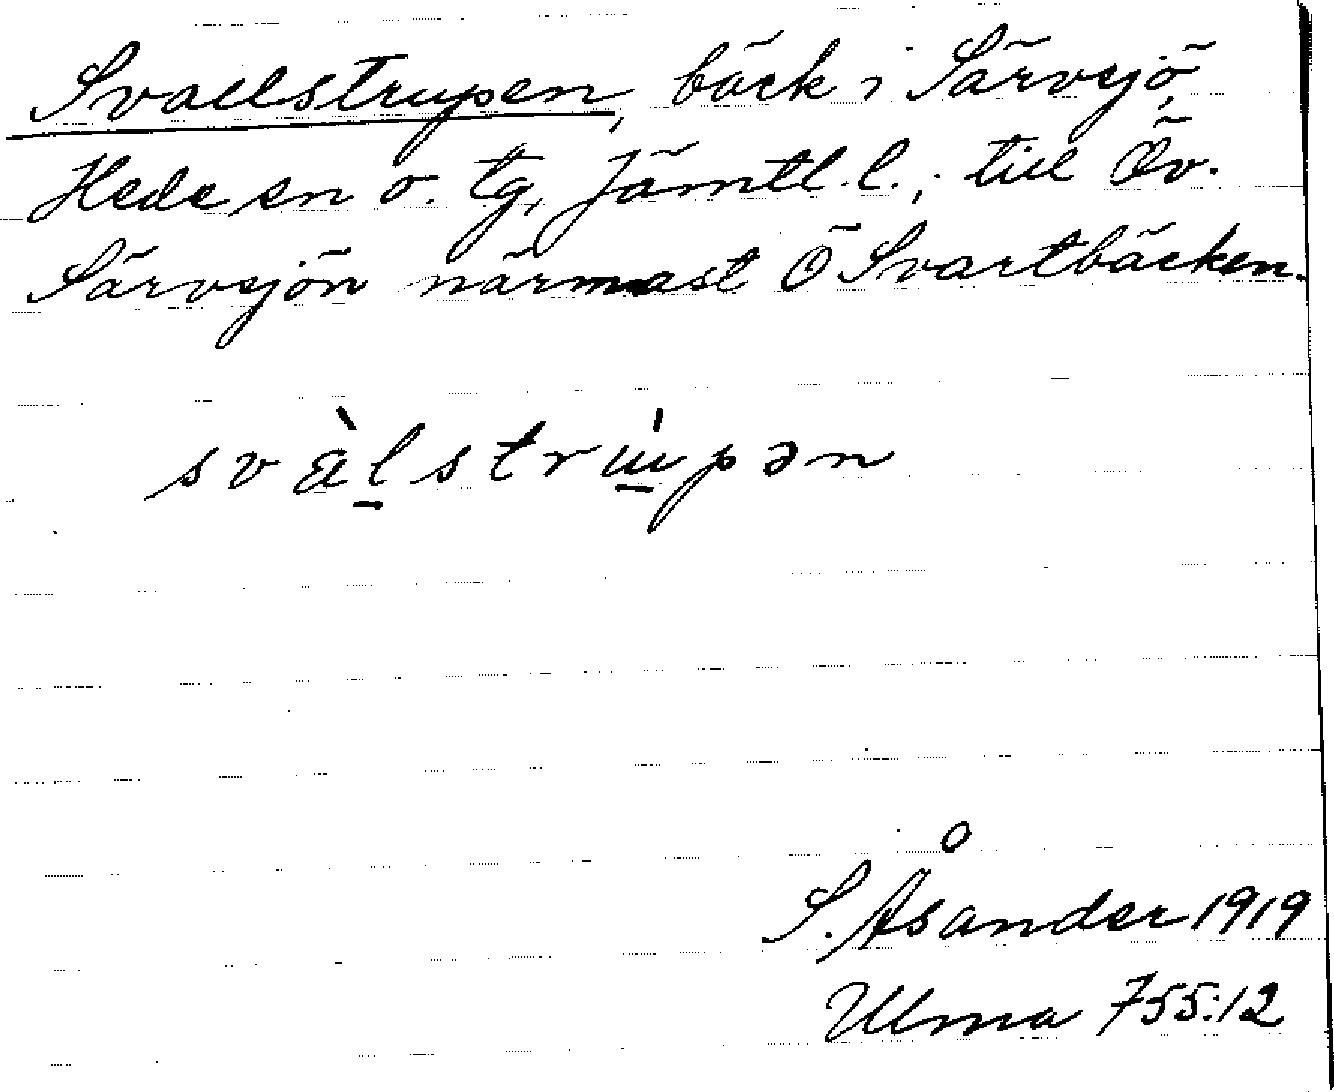 Svallstrupen, bäck i Särvsjö,
Hede sn o. tg, Jämtl. l.; till Öv.
Särvsjön närmast Ö Svartbäcken.
svàl̠stru̠̍pən
S. Åsander 1919
Ulma 755:12